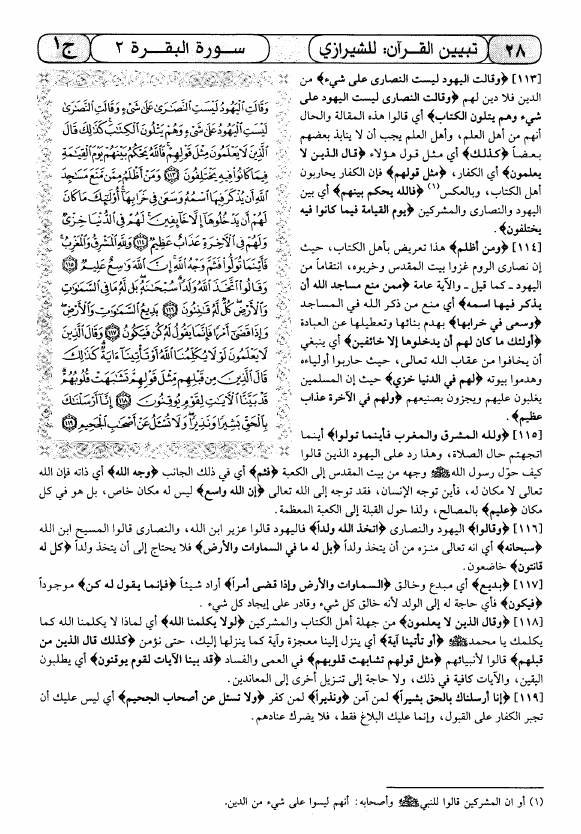 ٢٨
تبيين القرآن: للشيرازي
سورة البقرة ٢
ج١
[١١٣] ﴿وقالت اليهود ليست النصارى على شيء﴾ من
الدين فلا دين لهم ﴿وقالت النصارى ليست اليهود على
شيء وهم يتلون الكتاب﴾ أي قالوا هذه المقالة والحال
أنهم من أهل العلم، وأهل العلم يجب أن لا ينابذ بعضهم
بعضاً ﴿كذلك﴾ أي مثل قول هؤلاء ﴿قال الذين لا
يعلمون﴾ أي الكفار، ﴿مثل قولهم﴾ فإن الكفار يحاربون
أهل الكتاب، وبالعكس(١) ﴿فالله يحكم بينهم﴾ أي بين
اليهود والنصارى والمشركين ﴿يوم القيامة فيما كانوا فيه
يختلفون﴾.
[١١٤] ﴿ومن أظلم﴾ هذا تعريض بأهل الكتاب، حيث
إن نصارى الروم غزوا بيت المقدس وخربوه، انتقاماً من
اليهود ـ كما قيل ـ والآية عامة ﴿ممن منع مساجد الله أن
يذكر فيها اسمه﴾ أي منع من ذكر الله في المساجد
﴿وسعى في خرابها﴾ بهدم بنائها وتعطيلها عن العبادة
﴿أولئك ما كان لهم أن يدخلوها إلا خائفين﴾ أي ينبغي
أن يخافوا من عقاب الله تعالى، حيث حاربوا أولياءه
وهدموا بيوته ﴿لهم في الدنيا خزي﴾ حيث إن المسلمين
يغلبون عليهم ويجزون بصنيعهم ﴿ولهم في الآخرة عذاب
عظيم﴾.
[١١٥] ﴿ولله المشرق والمغرب فأينما تولوا﴾ أينما
اتجهتم حال الصلاة، وهذا رد على اليهود الذين قالوا
وَقَالَتِ الْيَهُودُ لَيْسَتِ النَّصَارَىٰ عَلَىٰ شَيْءٍ وَقَالَتِ النَّصَارَىٰ
لَيْسَتِ الْيَهُودُ عَلَىٰ شَيْءٍ وَهُمْ يَتْلُونَ الْكِتَابَ كَذَٰلِكَ قَالَ
الَّذِينَ لَا يَعْلَمُونَ مِثْلَ قَوْلِهِمْ فَاللَّهُ يَحْكُمُ بَيْنَهُمْ يَوْمَ الْقِيَامَةِ
فِيمَا كَانُوا فِيهِ يَخْتَلِفُونَ ١١٣ وَمَنْ أَظْلَمُ مِمَّن مَّنَعَ مَسَاجِدَ
اللَّهِ أَن يُذْكَرَ فِيهَا اسْمُهُ وَسَعَىٰ فِي خَرَابِهَا أُولَٰئِكَ مَا كَانَ
لَهُمْ أَن يَدْخُلُوهَا إِلَّا خَائِفِينَ لَهُمْ فِي الدُّنْيَا خِزْيٌ
وَلَهُمْ فِي الْآخِرَةِ عَذَابٌ عَظِيمٌ ١١٤ وَلِلَّهِ الْمَشْرِقُ وَالْمَغْرِبُ
فَأَيْنَمَا تُوَلُّوا فَثَمَّ وَجْهُ اللَّهِ إِنَّ اللَّهَ وَاسِعٌ عَلِيمٌ ١١٥
وَقَالُوا اتَّخَذَ اللَّهُ وَلَدًا سُبْحَانَهُ بَل لَّهُ مَا فِي السَّمَاوَاتِ
وَالْأَرْضِ كُلٌّ لَّهُ قَانِتُونَ ١١٦ بَدِيعُ السَّمَاوَاتِ وَالْأَرْضِ
وَإِذَا قَضَىٰ أَمْرًا فَإِنَّمَا يَقُولُ لَهُ كُن فَيَكُونُ ١١٧ وَقَالَ الَّذِينَ
لَا يَعْلَمُونَ لَوْلَا يُكَلِّمُنَا اللَّهُ أَوْ تَأْتِينَا آيَةٌ كَذَٰلِكَ
قَالَ الَّذِينَ مِن قَبْلِهِم مِّثْلَ قَوْلِهِمْ تَشَابَهَتْ قُلُوبُهُمْ
قَدْ بَيَّنَّا الْآيَاتِ لِقَوْمٍ يُوقِنُونَ ١١٨ إِنَّا أَرْسَلْنَاكَ
بِالْحَقِّ بَشِيرًا وَنَذِيرًا وَلَا تُسْأَلُ عَنْ أَصْحَابِ الْجَحِيمِ ١١٩
كيف حوّل رسول الله ﷺ وجهه من بيت المقدس إلى الكعبة ﴿فثم﴾ أي في ذلك الجانب ﴿وجه الله﴾ أي ذاته فإن الله
تعالى لا مكان له، فأين توجه الإنسان، فقد توجه إلى الله تعالى ﴿إن الله واسع﴾ ليس له مكان خاص، بل هو في كل
مكان ﴿عليم﴾ بالمصالح، ولذا حول القبلة إلى الكعبة المعظمة.
[١١٦] ﴿وقالوا﴾ اليهود والنصارى ﴿اتخذ الله ولداً﴾ فاليهود قالوا عزير ابن الله، والنصارى قالوا المسيح ابن الله
﴿سبحانه﴾ أي انه تعالى منزه من أن يتخذ ولداً ﴿بل له ما في السماوات والأرض﴾ فلا يحتاج إلى أن يتخذ ولداً ﴿كل له
قانتون﴾ خاضعون.
[١١٧] ﴿بديع﴾ أي مبدع وخالق ﴿السماوات والأرض وإذا قضى أمراً﴾ أراد شيئاً ﴿فإنما يقول له كن﴾ موجوداً
﴿فيكون﴾ فأي حاجة له إلى الولد لأنه خالق كل شيء وقادر على إيجاد كل شيء .
[١١٨] ﴿وقال الذين لا يعلمون﴾ من جهلة أهل الكتاب والمشركين ﴿لولا يكلمنا الله﴾ أي لماذا لا يكلمنا الله كما
يكلمك يا محمد ﷺ ﴿أو تأتينا آية﴾ أي ينزل إلينا معجزة وآية كما ينزلها إليك، حتى نؤمن ﴿كذلك قال الذين من
قبلهم﴾ قالوا لأنبيائهم ﴿مثل قولهم تشابهت قلوبهم﴾ في العمى والفساد ﴿قد بينا الآيات لقوم يوقنون﴾ أي يطلبون
اليقين، والآيات كافية في ذلك، ولا حاجة إلى تنزيل أخرى إلى المعاندين.
[١١٩] ﴿إنا أرسلناك بالحق بشيراً﴾ لمن آمن ﴿ونذيراً﴾ لمن كفر ﴿ولا تسئل عن أصحاب الجحيم﴾ أي ليس عليك أن
تجبر الكفار على القبول، وإنما عليك البلاغ فقط، فلا يضرك عنادهم.
(١) أو ان المشركين قالوا للنبي ﷺ وأصحابه: أنهم ليسوا على شيء من الدين.